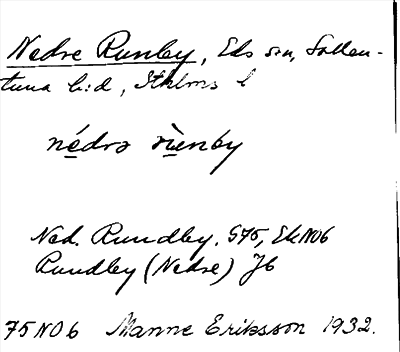 Nedre Runby, Eds sn, Sollen-
tuna h:d, Sthlms l
nédrə rùnby
Ned. Rundby. G75, Ek NO6
Rundby (Nedre) Jb
75 NO 6 Manne Eriksson 1932.